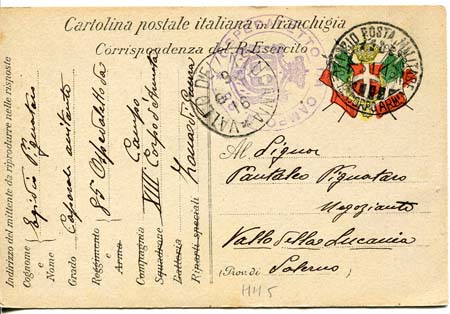 Cartolina postale italiana in franchigia
Corrispondenza del R. Esercito
VALLO DELLA LUCANIA
UFFICIO POSTA MILITARE
Indirizzo del mittente da riprodurre nelle risposte
Cognome e Nome Egidio Pignataro
Grado Caporale aiutante
Reggimento e Arma 85 Ospedaletto da
Compagnia Campo
Squadrone XIII Corpo d'Armata
Batteria
Riparti speciali Zona di Guerra
Al Signor
Pantaleo Pignataro
Negoziante
Vallo della Lucania
(Prov. di Salerno)
HH5